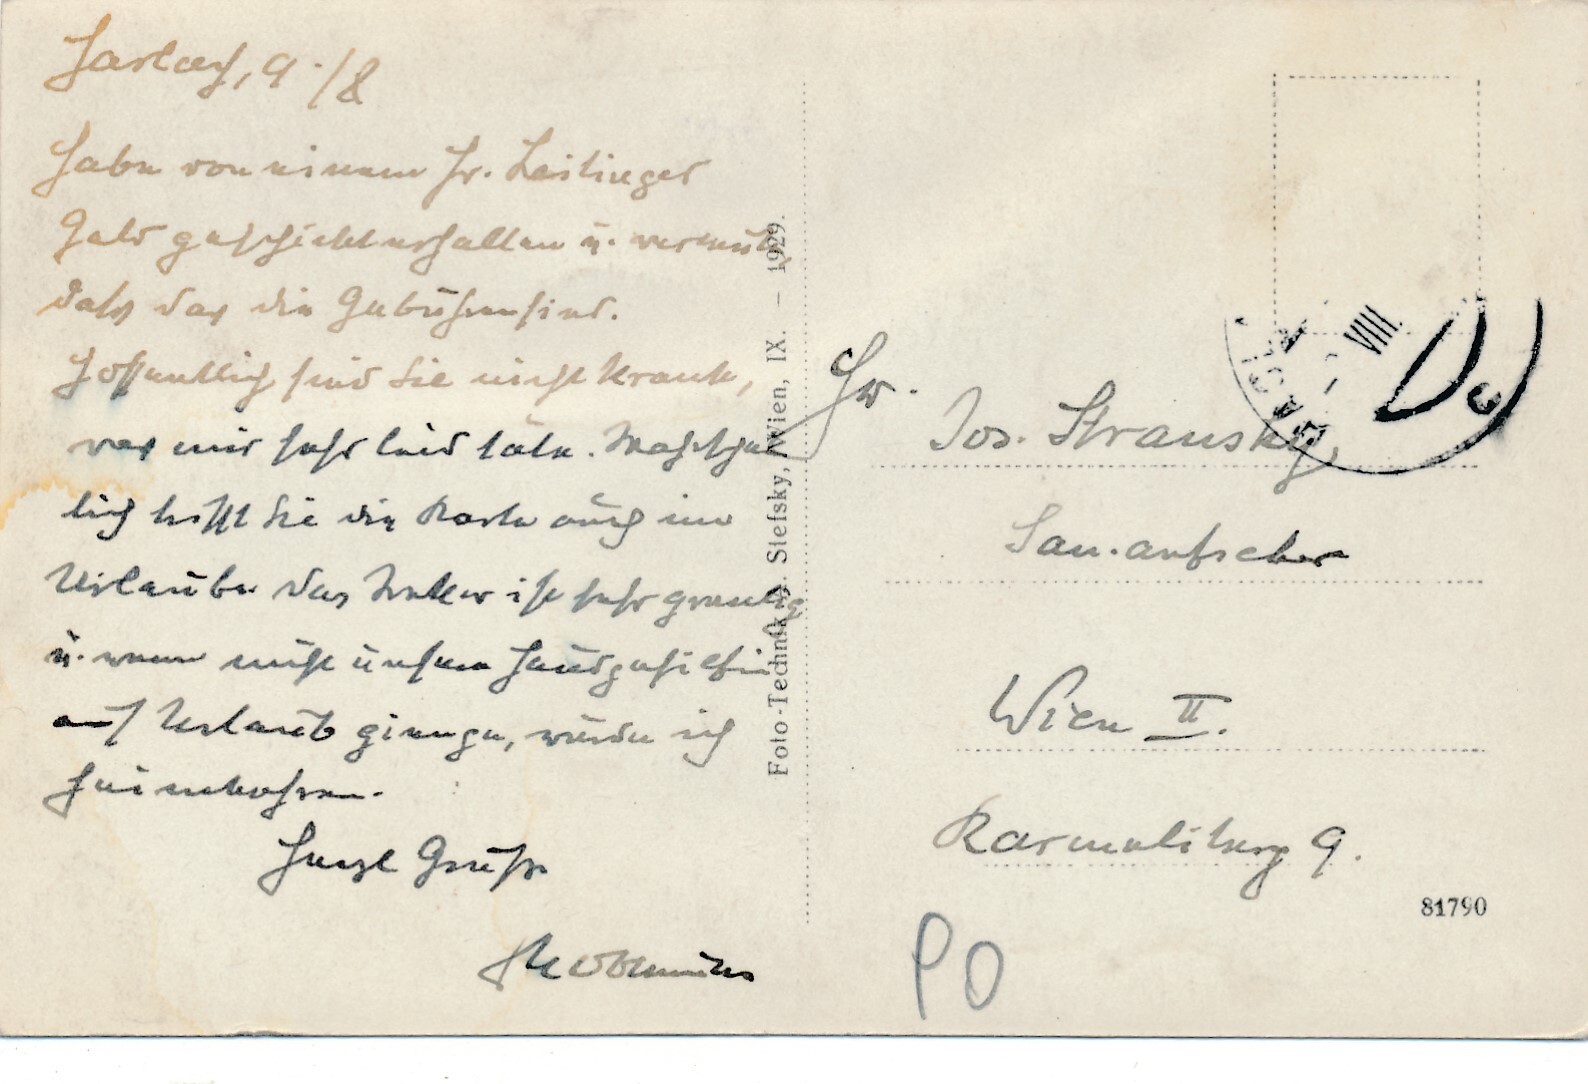 Harlach, 9./8
Habe von einem Hr. Leitinger
Geld geschickt erhalten u. vermute
daß das die Gebühren sind.
Hoffentlich sind Sie nicht krank,
was mir sehr leid täte. Wahrschein
lich trifft Sie die Karte auch im
Urlaube. Das Wetter ist sehr grauslig
u. wenn nicht unsere Hausgehilfin
auf Urlaub ginge, würde ich
heimkehren.
Herzl Grüße
Foto-Technik A. Stefsky, Wien, IX. – 1929.
Hr.
Jos. Stransky,
San. aufseher
Wien II.
Karmeliterg 9.
VIII
81790
PO